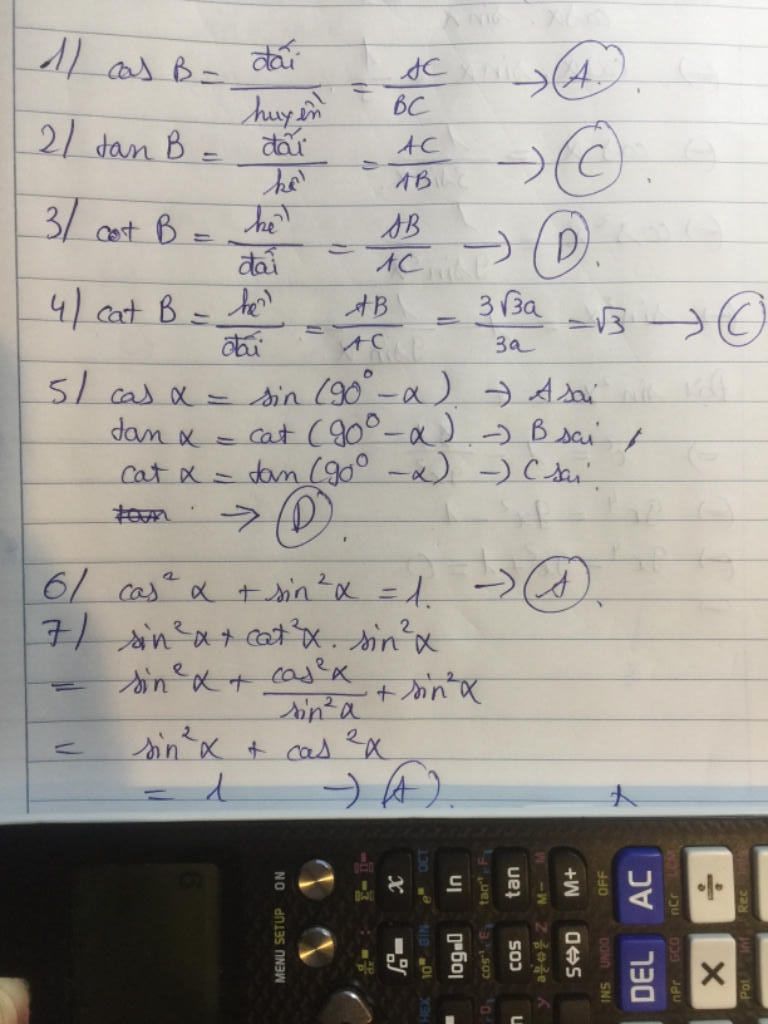 1/ cos B = đối/huyền = AC/BC → A.
2/ tan B = đối/kề = AC/AB → C.
3/ cot B = kề/đối = AB/AC → D.
4/ cot B = kề/đối = AB/AC = 3√3a/3a = √3 → C
5/ cos α = sin (90° - α). → A sai
tan α = cot (90° - α). → B sai
cot α = tan (90° - α) → C sai.
tan → D.
6/ cos² α + sin² α = 1. → A.
7/ sin² α + cot² α . sin² α
= sin² α + cos² α/sin² α + sin² α
= sin² α + cos² α
= 1 → A.
ON
MENU SETUP
x
ln
tan
M+
OFF
AC
nCr
÷
Rec
log
cos
S⇔D
INS
UNDO
DEL
nPr
GCD
×
Pol
OCT
BIN
HEX
M−